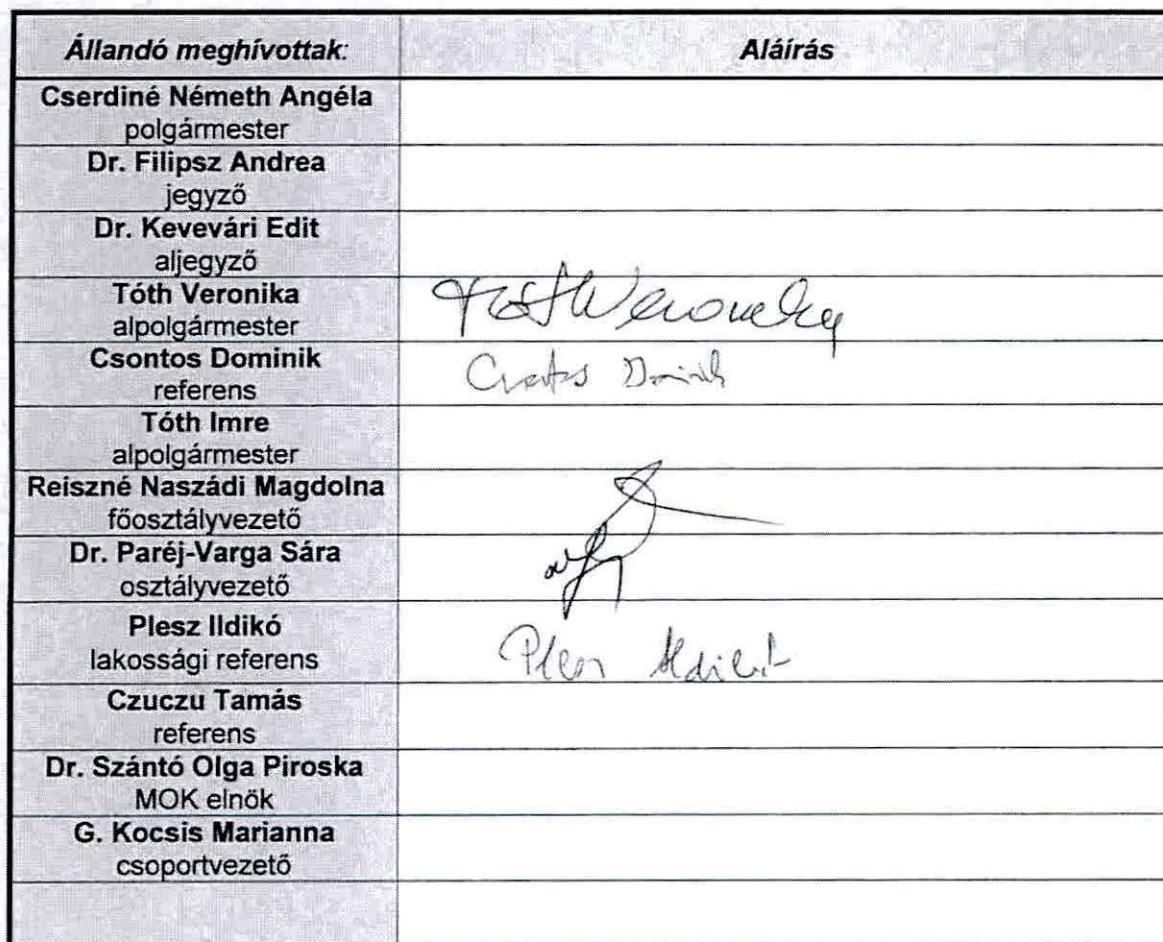 Állandó meghívottak: Aláírás
Cserdiné Németh Angéla
polgármester
Dr. Filipsz Andrea
jegyző
Dr. Kevevári Edit
aljegyző
Tóth Veronika
alpolgármester
Csontos Dominik
referens
Csontos Dominik
Tóth Imre
alpolgármester
Reiszné Naszádi Magdolna
főosztályvezető
Dr. Paréj-Varga Sára
osztályvezető
Plesz Ildikó
lakossági referens
Plesz Ildikó
Czuczu Tamás
referens
Dr. Szántó Olga Piroska
MOK elnök
G. Kocsis Marianna
csoportvezető